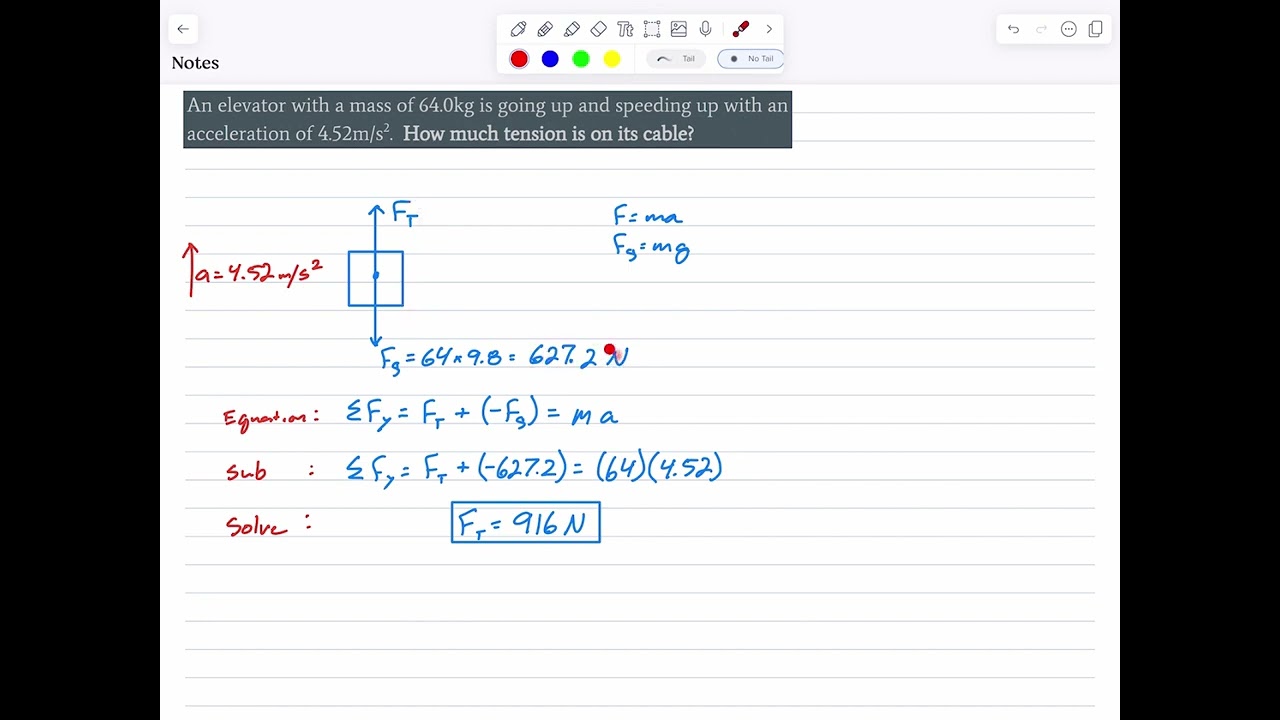 Notes
Tail
No Tail
Tt
An elevator with a mass of 64.0kg is going up and speeding up with an
acceleration of 4.52m/s². How much tension is on its cable?
F_T
F = ma
F_g = mg
a = 4.52 m/s²
F_g = 64 × 9.8 = 627.2 N
Equation: ΣF_y = F_T + (-F_g) = m a
Sub : ΣF_y = F_T + (-627.2) = (64)(4.52)
Solve : F_T = 916 N